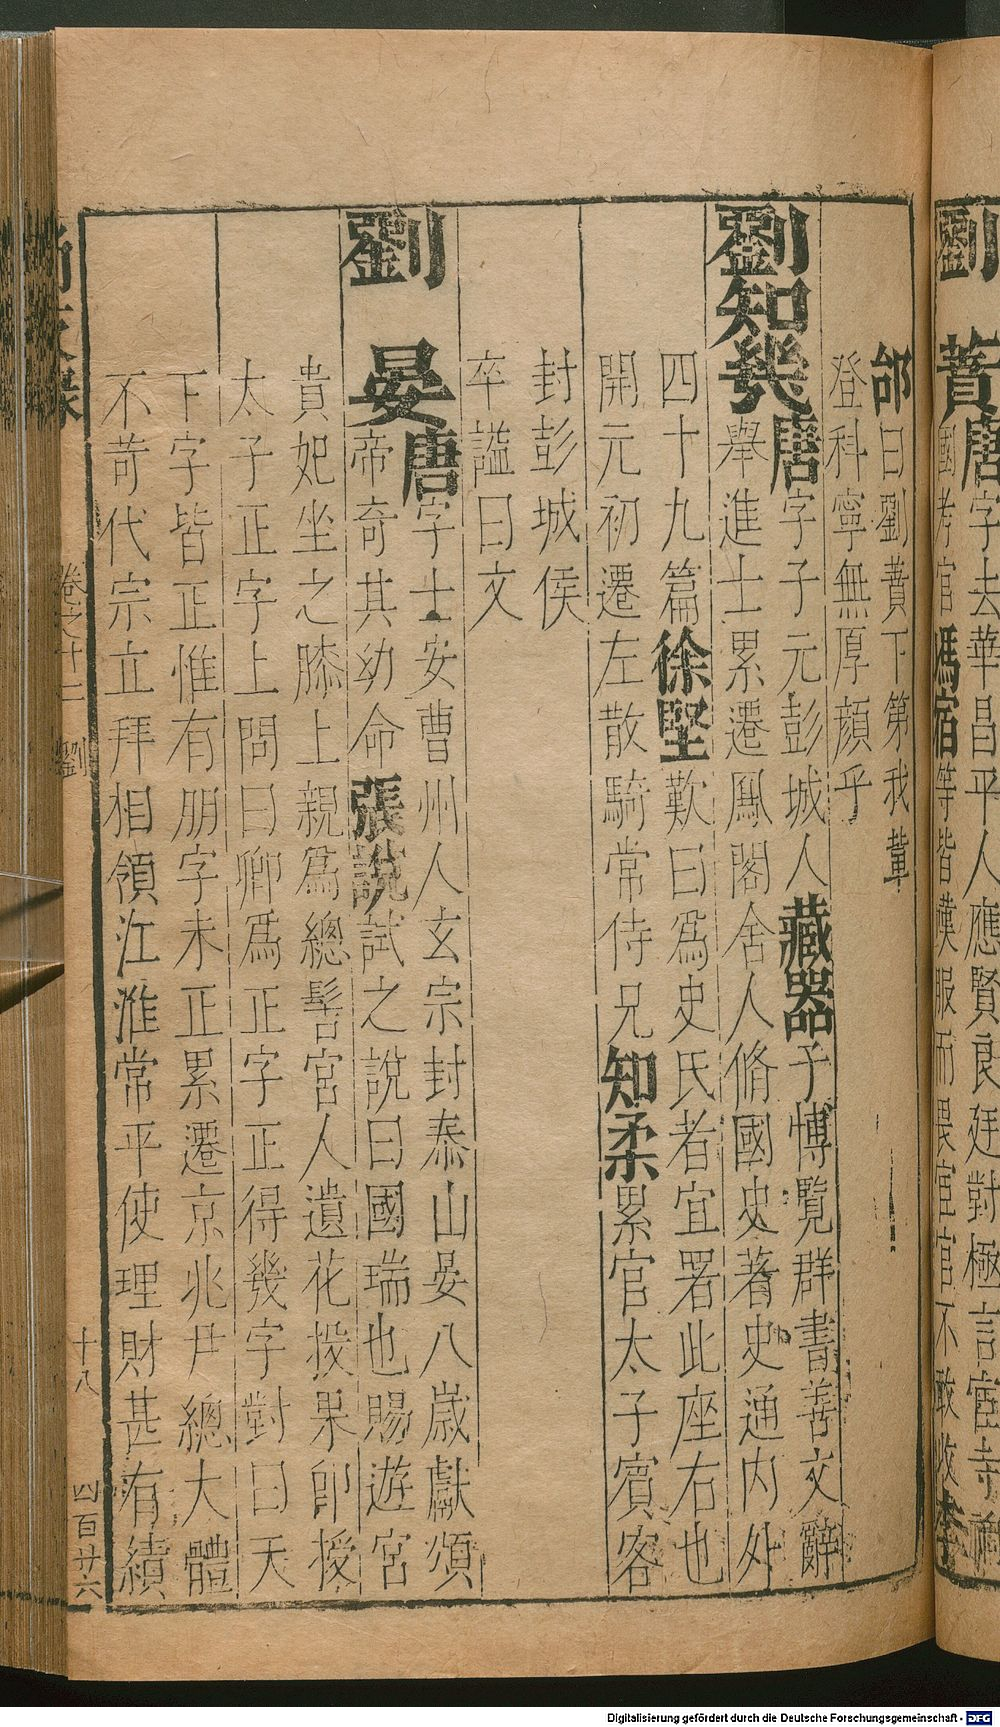 劉 蕡唐字去華昌平人應賢良廷對極言宦寺禍
國考官馮宿等皆嘆服而畏宦官不敢收李
郃曰劉蕡下第我輩
登科寧無厚顔乎
劉知幾唐字子元彭城人藏器子博覽群書善文辭
舉進士累遷鳳閣舍人脩國史著史通内外
四十九篇徐堅歎曰爲史氏者宜署此座右也
開元初遷左散騎常侍兄知柔累官太子賓客
封彭城侯
卒謚曰文
劉 晏唐字士安曹州人玄宗封泰山晏八歲獻頌
帝奇其幼命張説試之說曰國瑞也賜遊宮
貴妃坐之膝上親爲總髻宮人遺花投果卽授
太子正字上問曰卿爲正字正得幾字對曰天
下字皆正惟有朋字未正累遷京兆尹總大體
不苛代宗立拜相領江淮常平使理財甚有績
卷之廿二 劉 十八 四百廿六
Digitalisierung gefördert durch die Deutsche Forschungsgemeinschaft - DFG